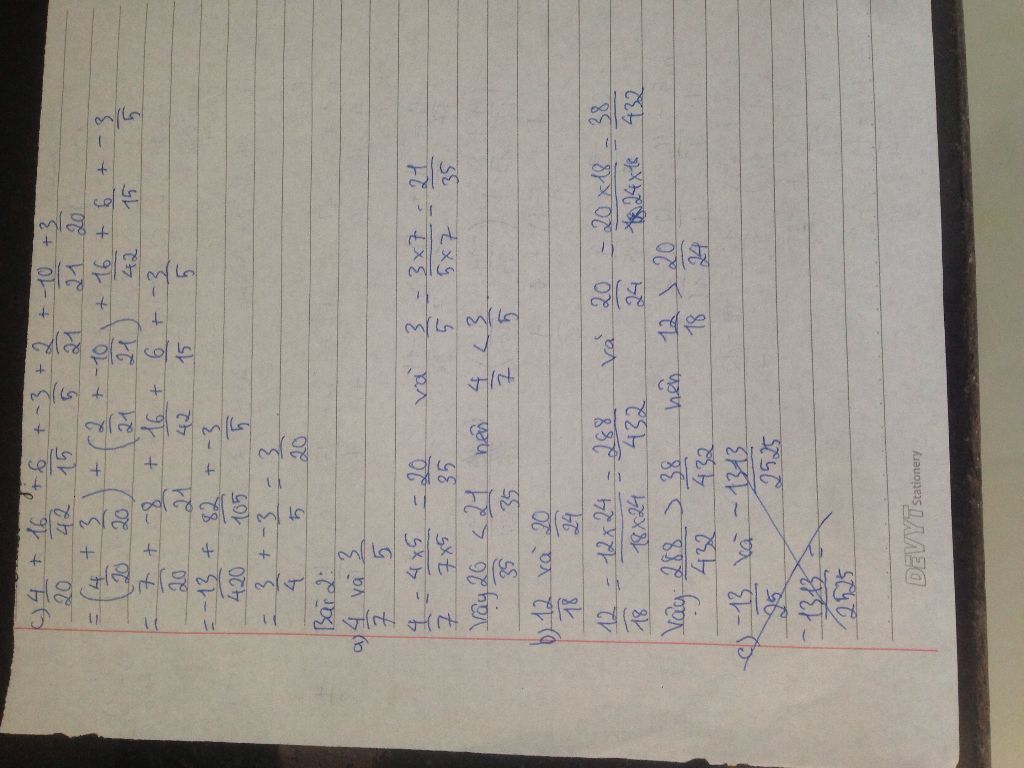 c) 4/20 + 16/42 + 6/15 + -3/5 + 2/21 + -10/21 + 3/20
= (4/20 + 3/20) + (2/21 + -10/21) + 16/42 + 6/15 + -3/5
= 7/20 + -8/21 + 16/42 + 6/15 + -3/5
= -13/420 + 82/105 + -3/5
= 3/4 + -3/5 = 3/20
Bài 2:
a) 4/7 và 3/5
4/7 = 4x5/7x5 = 20/35 và 3/5 = 3x7/5x7 = 21/35
Vậy 20/35 < 21/35 nên 4/7 < 3/5
b) 12/18 và 20/24
12/18 = 12x24/18x24 = 288/432 và 20/24 = 20x18/24x18 = 38/432
Vậy 288/432 > 38/432 nên 12/18 > 20/24
c) -13/25 và -1313/2525
-1313/2525 =
DEVYT Stationery